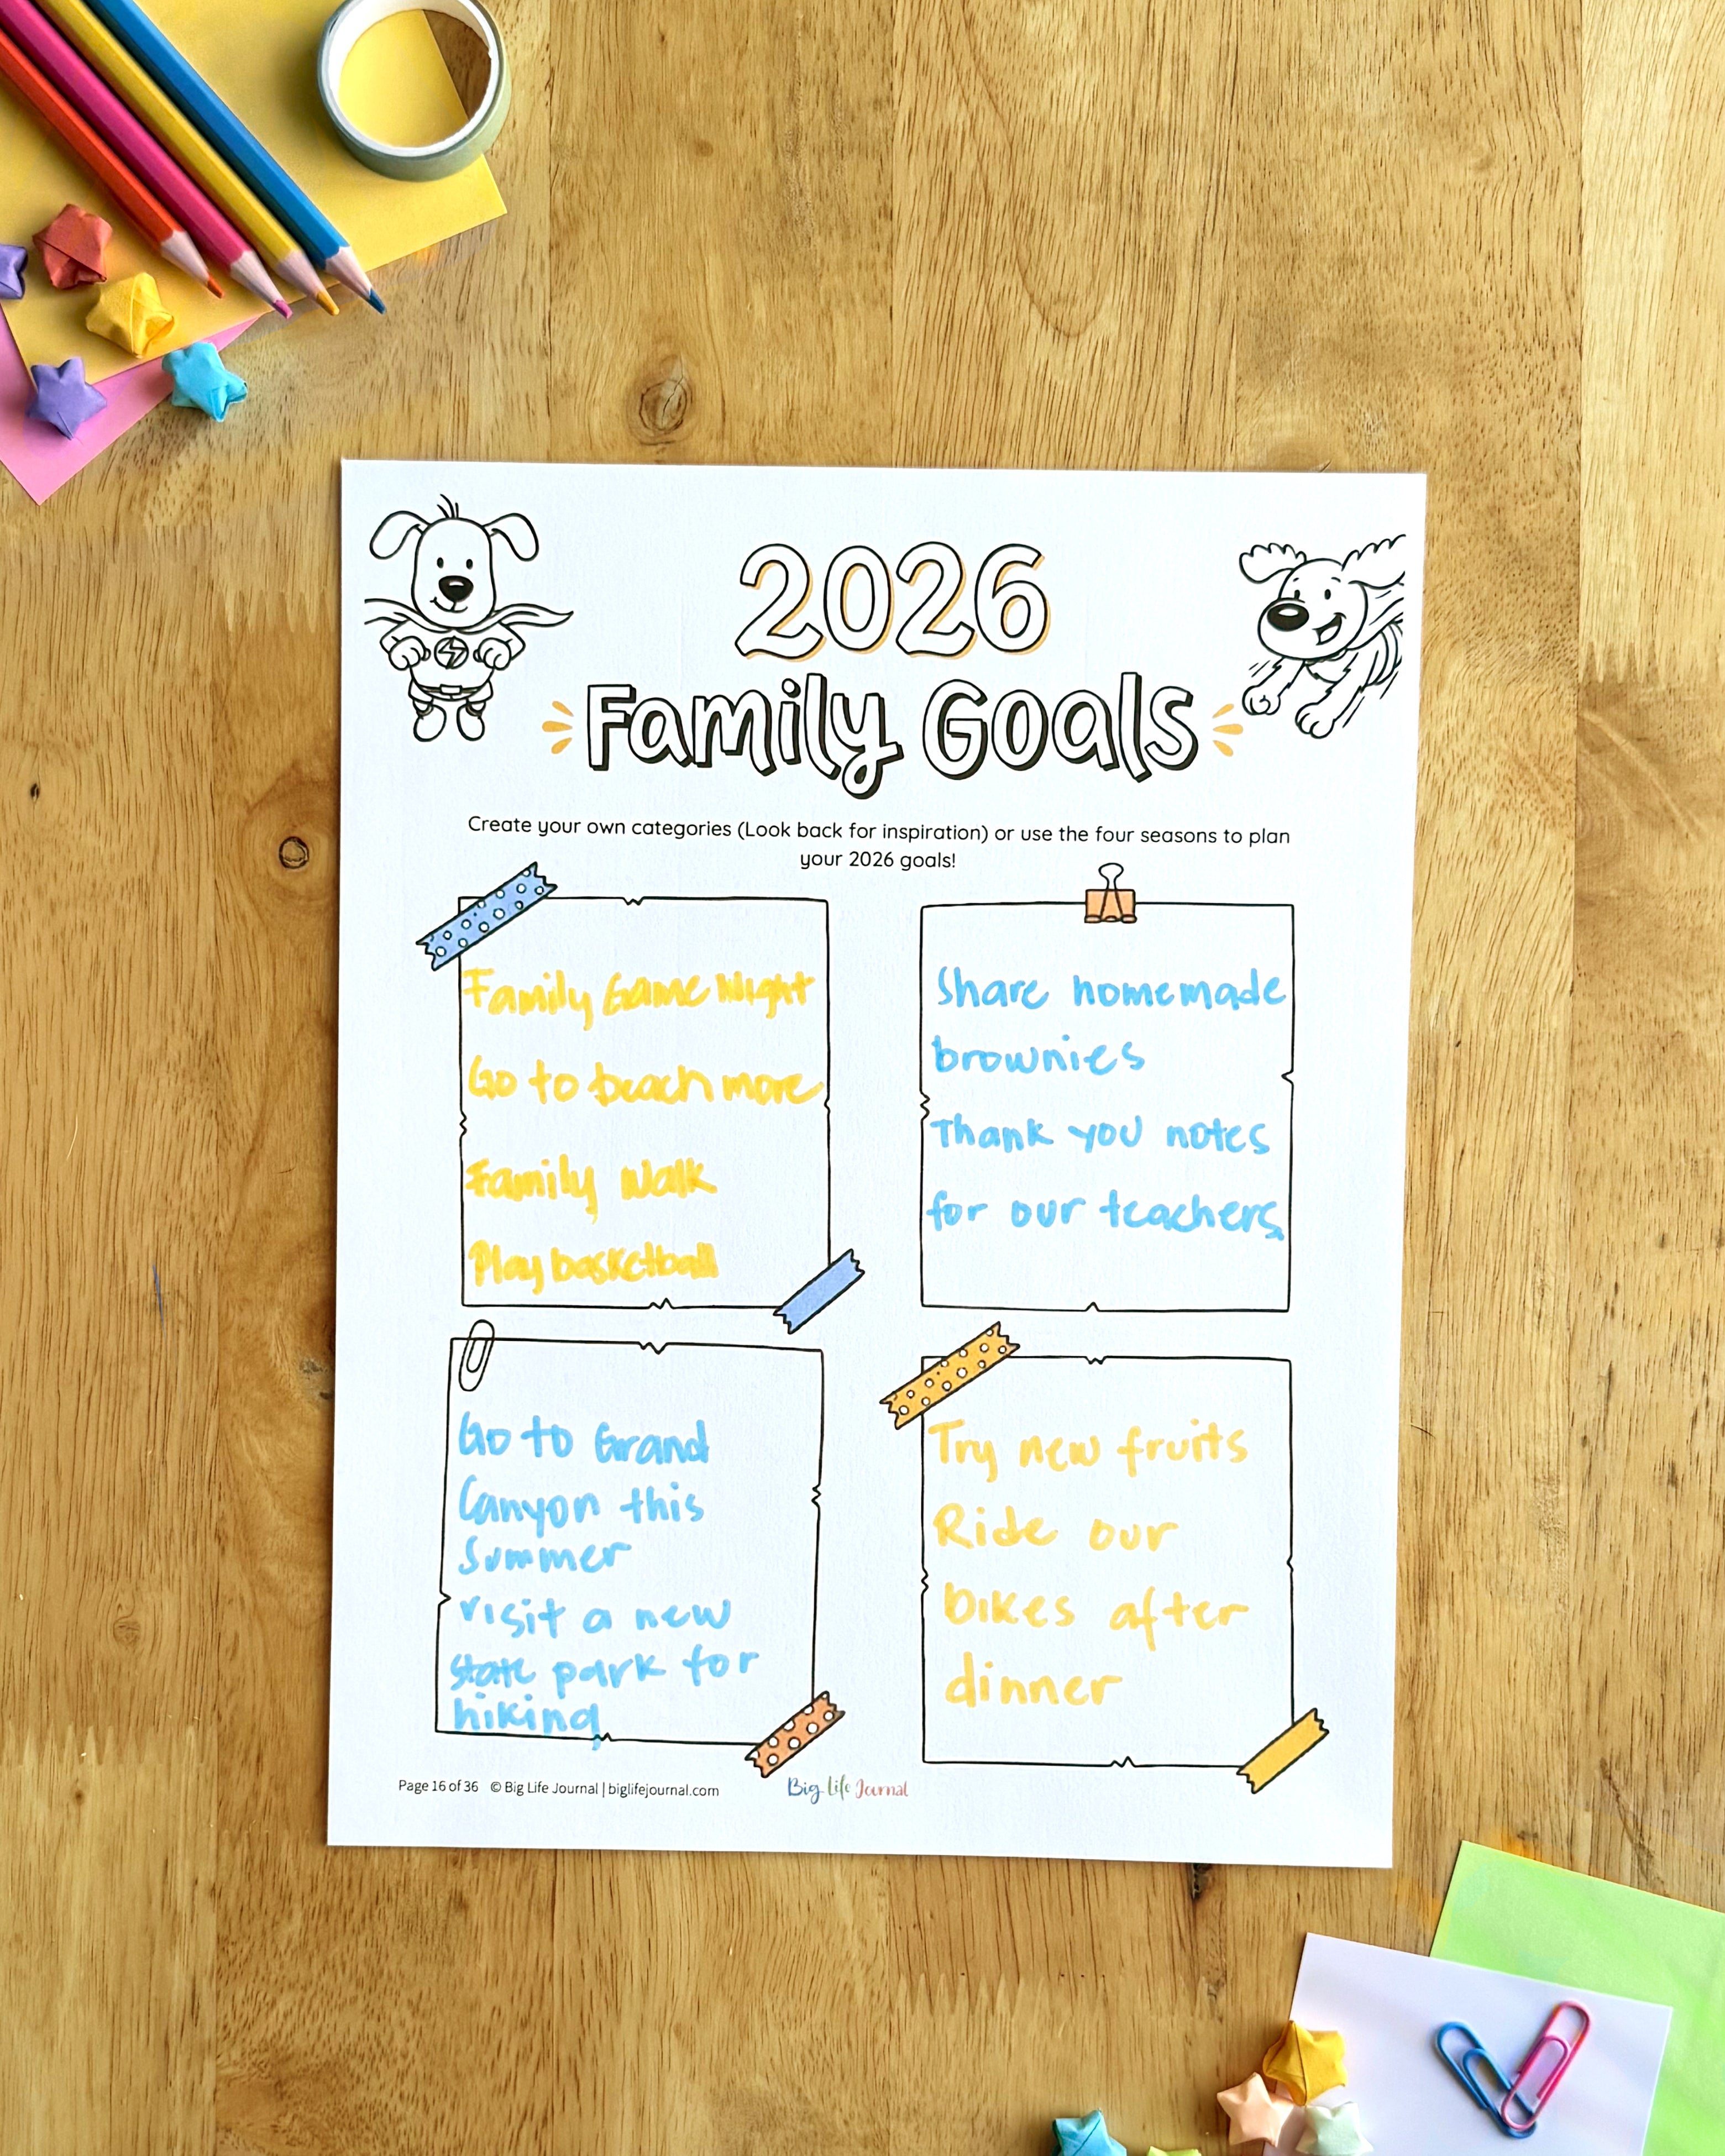 2026
Family Goals
Create your own categories (Look back for inspiration) or use the four seasons to plan
your 2026 goals!
Family Game Night
Go to beach more
Family Walk
Play basketball
Share homemade
brownies
Thank you notes
for our teachers
Go to Grand
Canyon this
Summer
visit a new
state park for
hiking
Try new fruits
Ride our
bikes after
dinner
Page 16 of 36 © Big Life Journal | biglifejournal.com
Big Life Journal